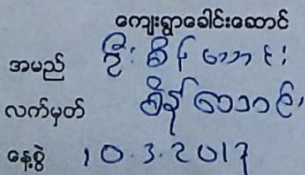 ကျေးရွာခေါင်းဆောင်
အမည် ဦးစိန်မောင်း
လက်မှတ် စိန်မောင်း
နေ့စွဲ 10.3.2017